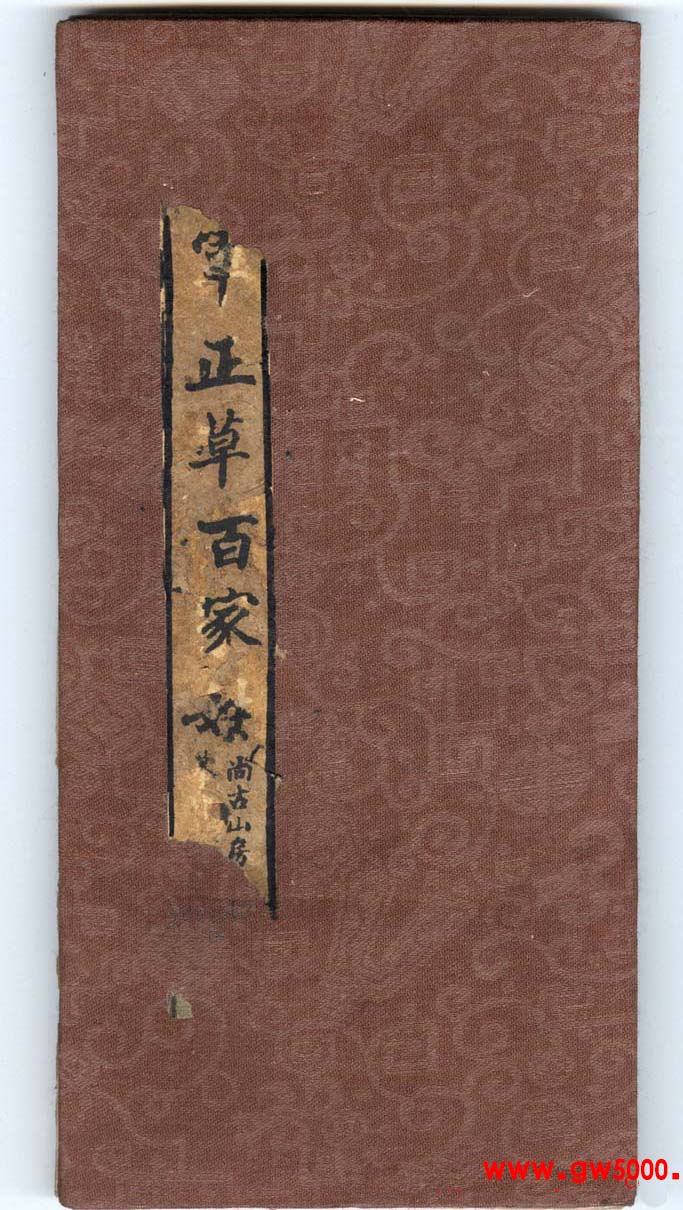 正草百家姓
尚古山房
www.gw5000.